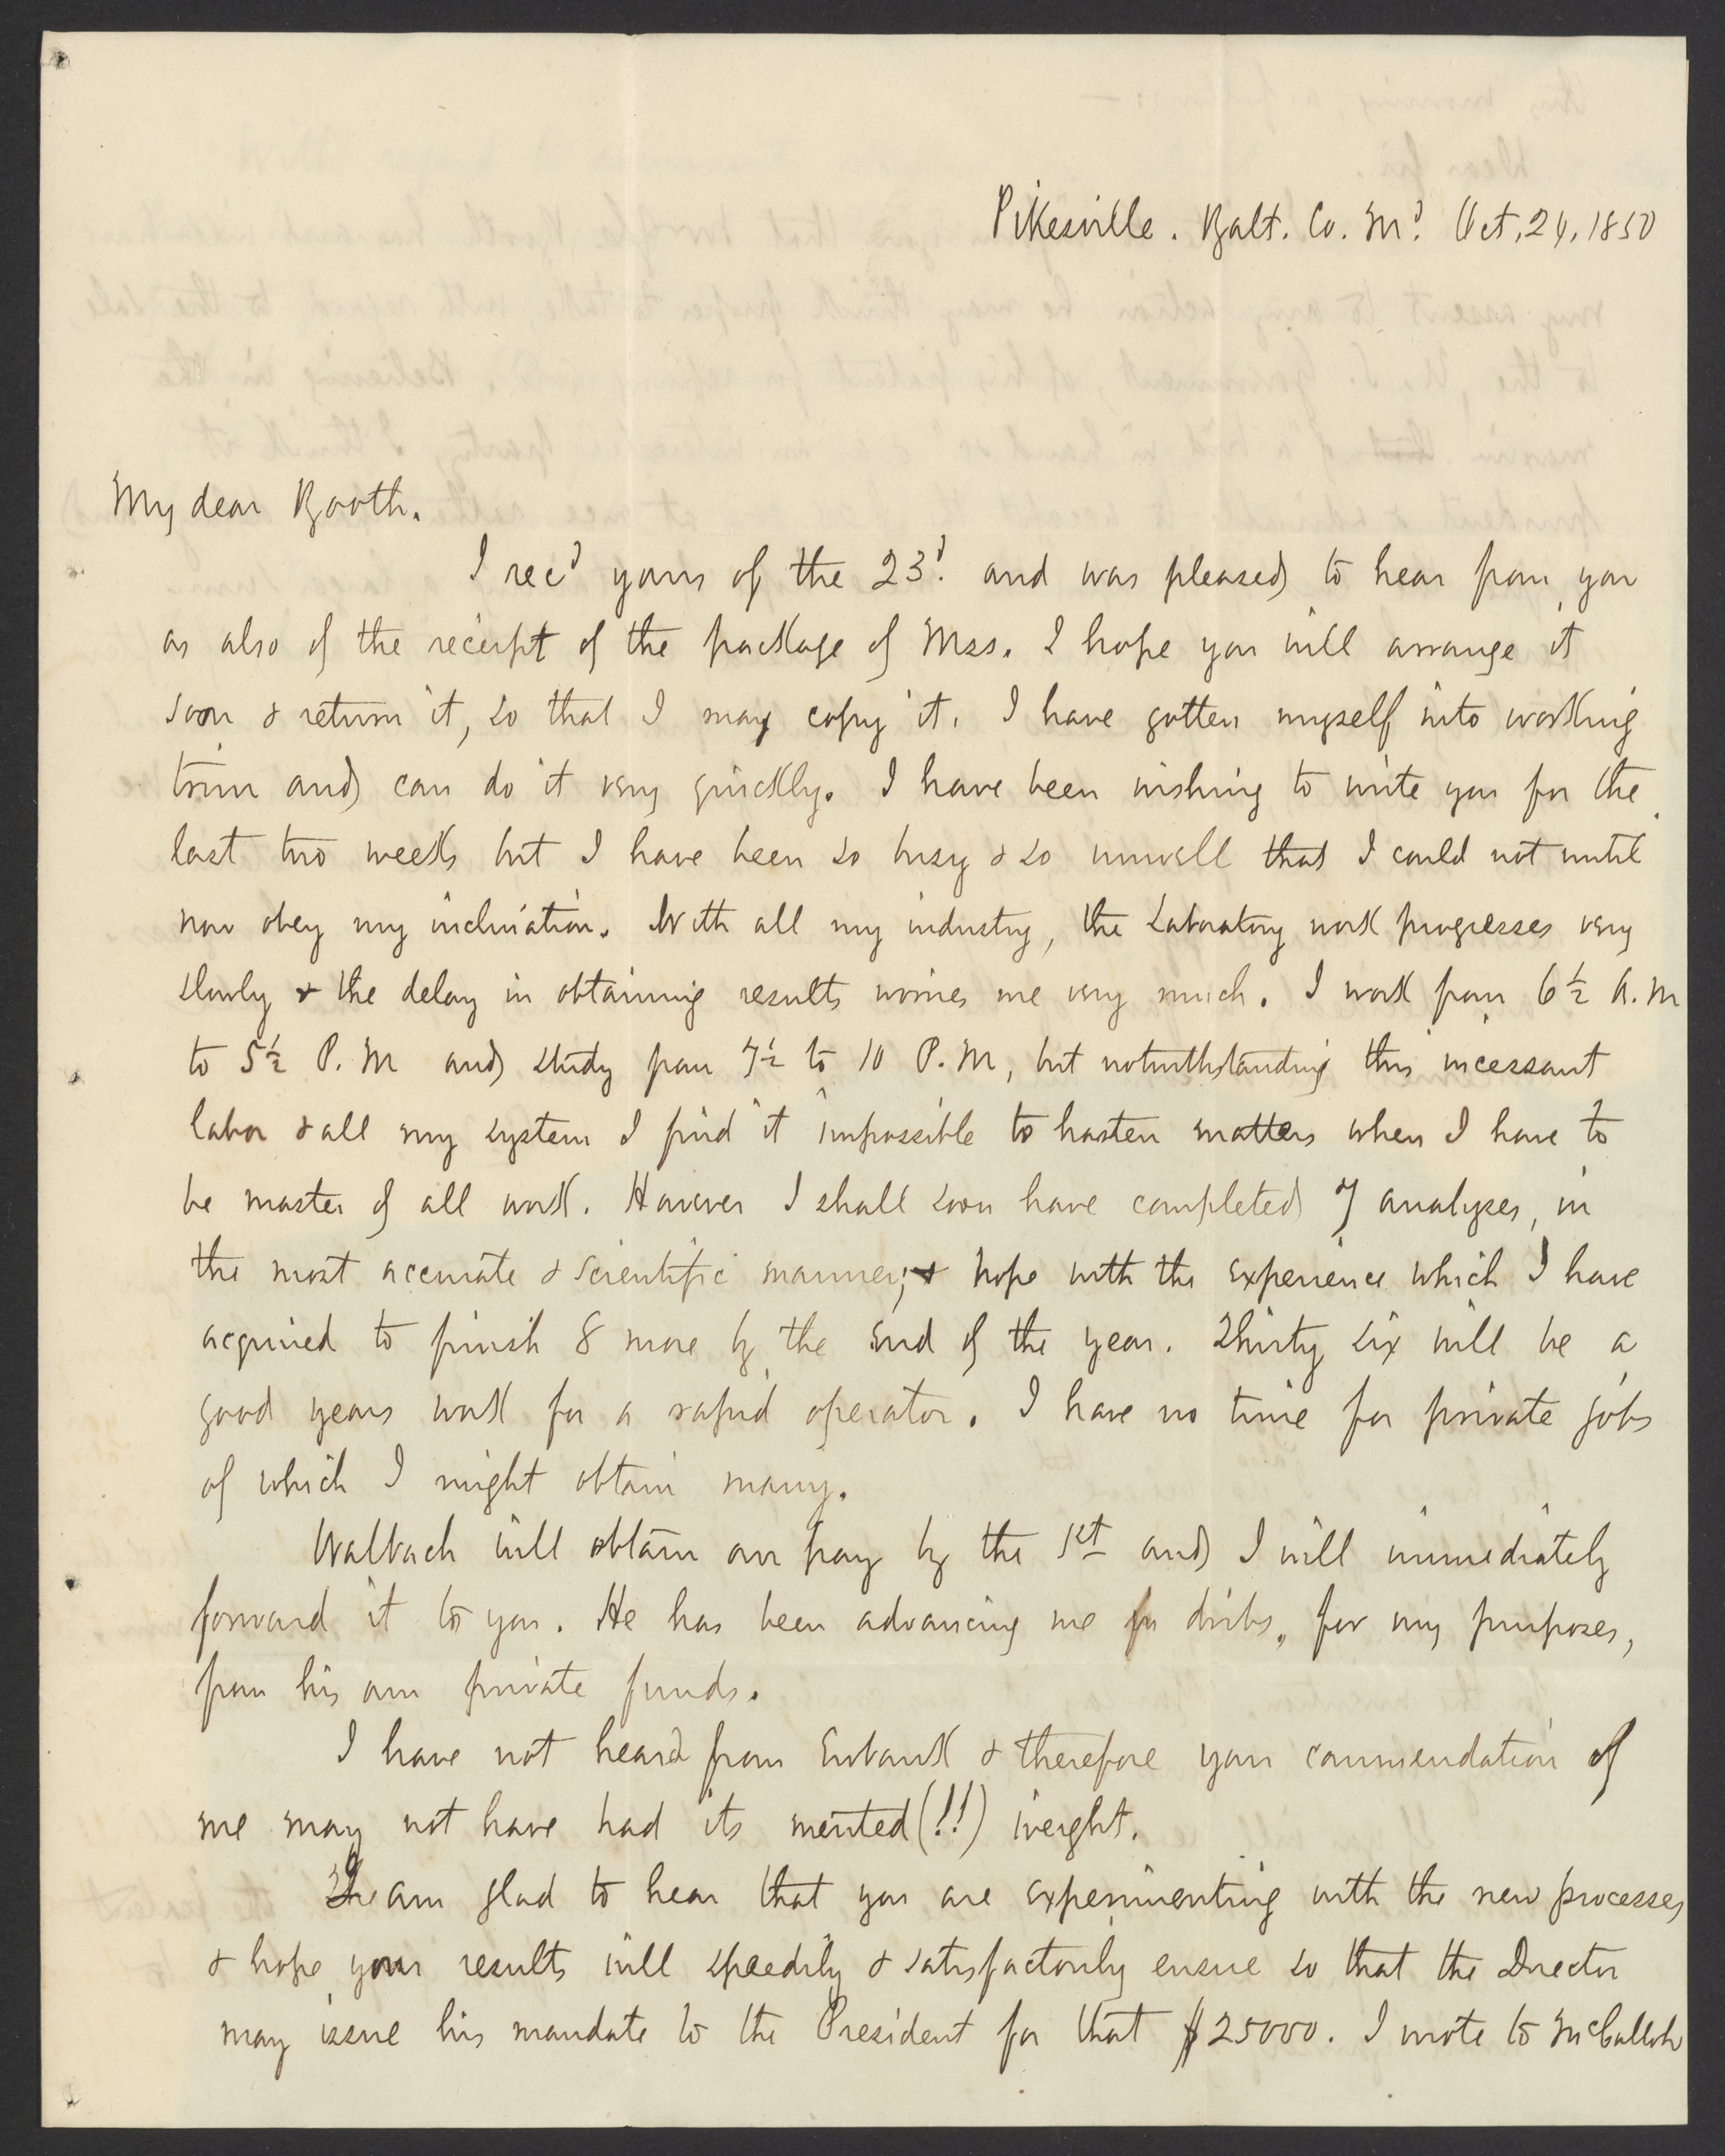 Pikesville. Balt. Co. Md. Oct. 24, 1850
My dear Booth.
I recd yours of the 23d. and was pleased to hear from you
as also of the receipt of the package of Mss. I hope you will arrange it
soon & return it, so that I may copy it. I have gotten myself into working
trim and can do it very quickly. I have been wishing to write you for the
last two weeks but I have been so busy & so unwell that I could not until
now obey my inclination. With all my industry, the Laboratory work progresses very
slowly & the delay in obtaining results worries me very much. I work from 6 1/2 A.M
to 5 1/2 P.M and study from 7 1/2 to 10 P.M, but notwithstanding this incessant
labor & all my system I find it impossible to hasten matters when I have to
be master of all work. However I shall soon have completed 7 analyses, in
the most accurate & scientific manner; & hope with the experience which I have
acquired to finish 8 more by the end of the year. Thirty six will be a
good years work for a rapid operator. I have no time for private jobs
of which I might obtain many.
Walbach will obtain our pay by the 1st and I will immediately
forward it to you. He has been advancing me in dribs, for my purposes,
from his own private funds.
I have not heard from Eubank & therefore your commendation of
me may not have had its merited (!!) weight.
I am glad to hear that you are experimenting with the new processes
& hope your results will speedily & satisfactorily ensue so that the Director
may issue his mandate to the President for that $25000. I wrote to McCulloh